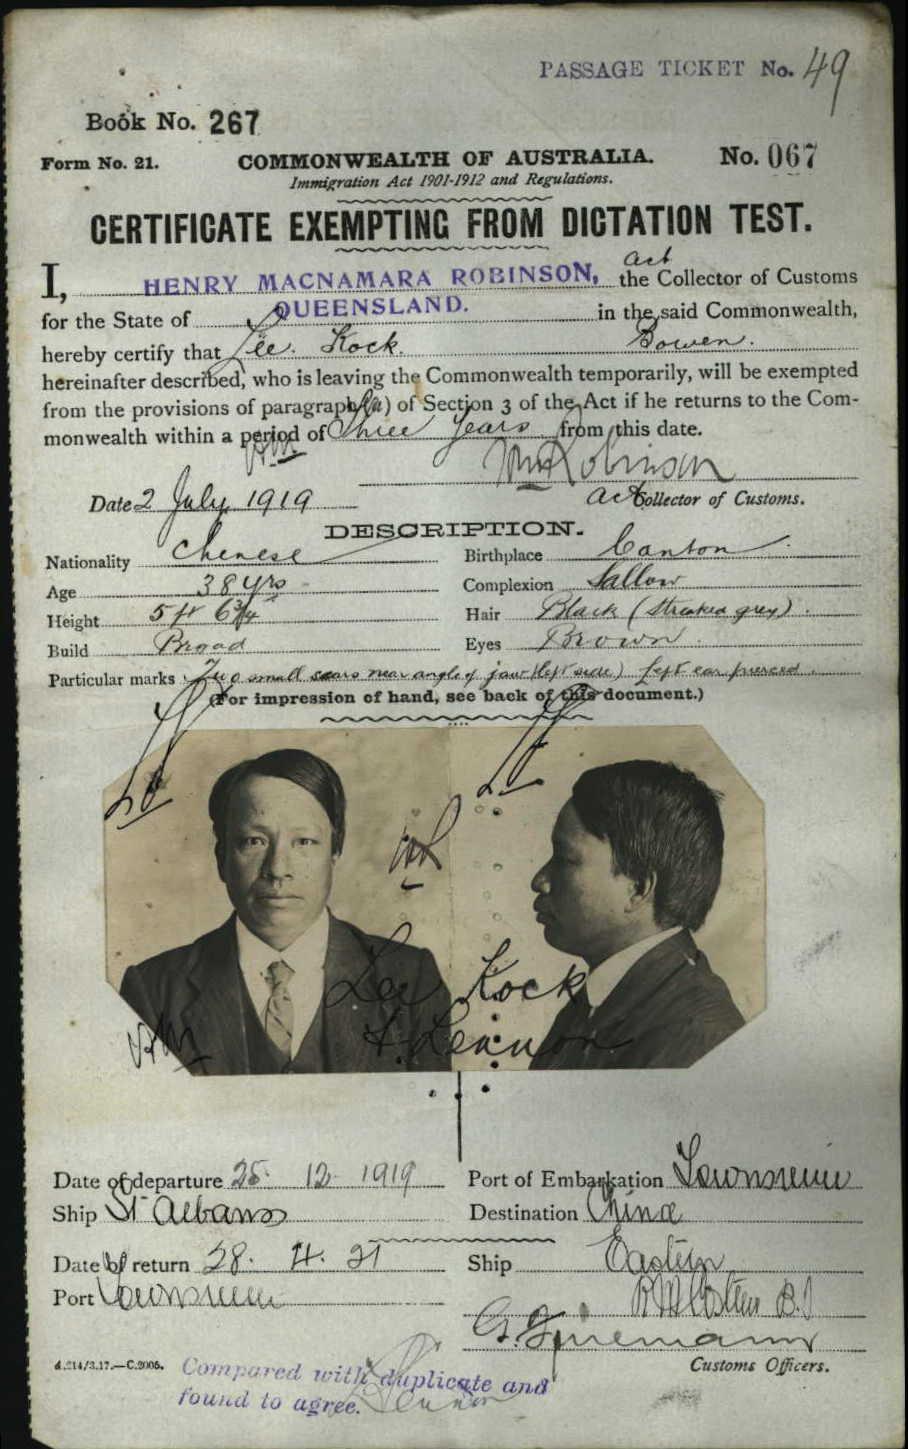 PASSAGE TICKET No. 49
Book No. 267
Form No. 21. COMMONWEALTH OF AUSTRALIA. No. 067
Immigration Act 1901-1912 and Regulations.
CERTIFICATE EXEMPTING FROM DICTATION TEST.
act
I, HENRY MACNAMARA ROBINSON, the Collector of Customs
for the State of QUEENSLAND. in the said Commonwealth,
hereby certify that Lee Kock. Bowen.
hereinafter described, who is leaving the Commonwealth temporarily, will be exempted
from the provisions of paragraph (a) of Section 3 of the Act if he returns to the Com-
monwealth within a period of Three Years from this date.
Robinson
Date 2 July 1919 act Collector of Customs.
DESCRIPTION.
Nationality Chinese Birthplace Canton
Age 38 yrs Complexion Sallow
Height 5 ft 6 3/4 Hair Black (streaked grey).
Build Broad Eyes Brown.
Particular marks Two small scars near angle of jaw (left side) left ear pierced.
(For impression of hand, see back of this document.)
Lee Kock
Lennon
Date of departure 25. 12. 1919 Port of Embarkation Townsville
Ship St Albans Destination China
Date of return 28. 4. 21 Ship Eastern
Port Townsville
Customs Officers.
d.214/3.17.—C.2005.
Compared with duplicate and
found to agree.